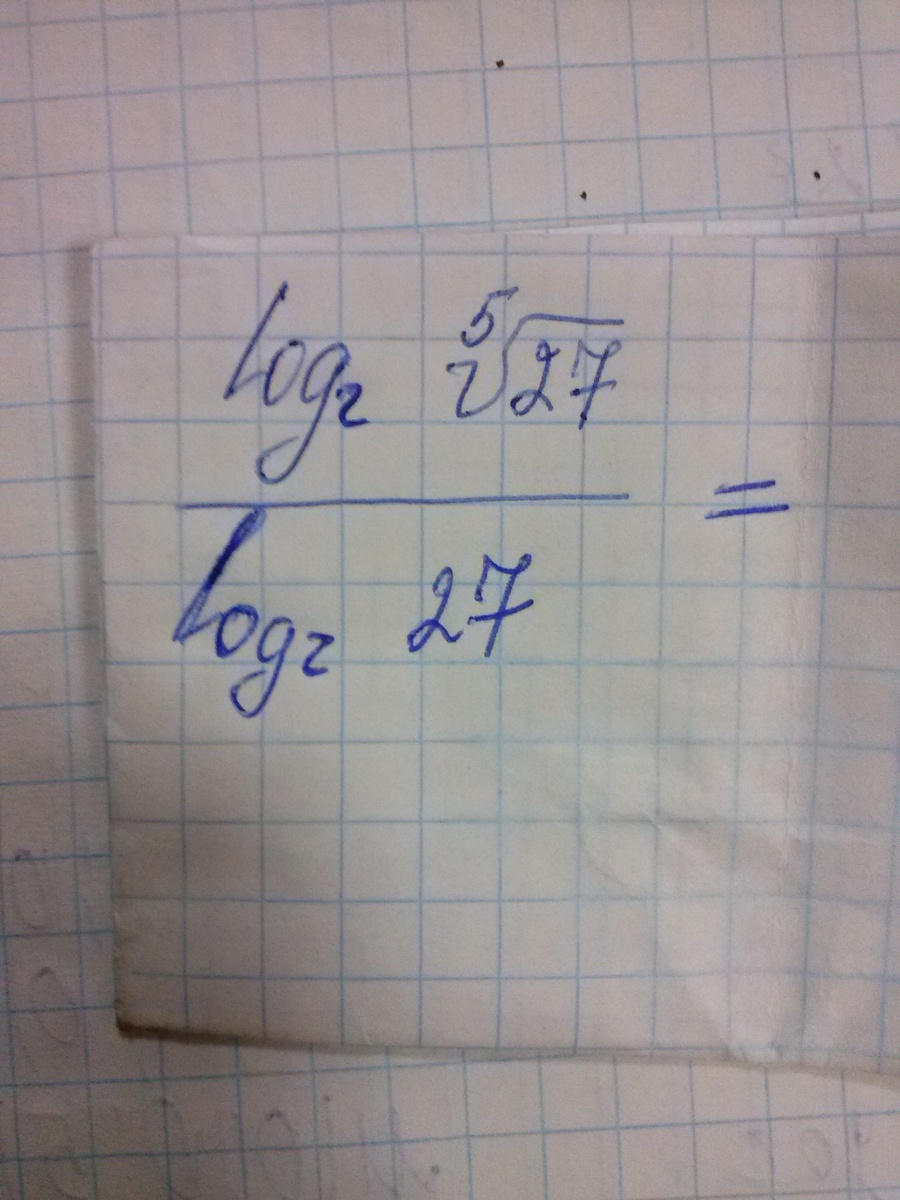 log₂ ⁵√27
=
log₂ 27